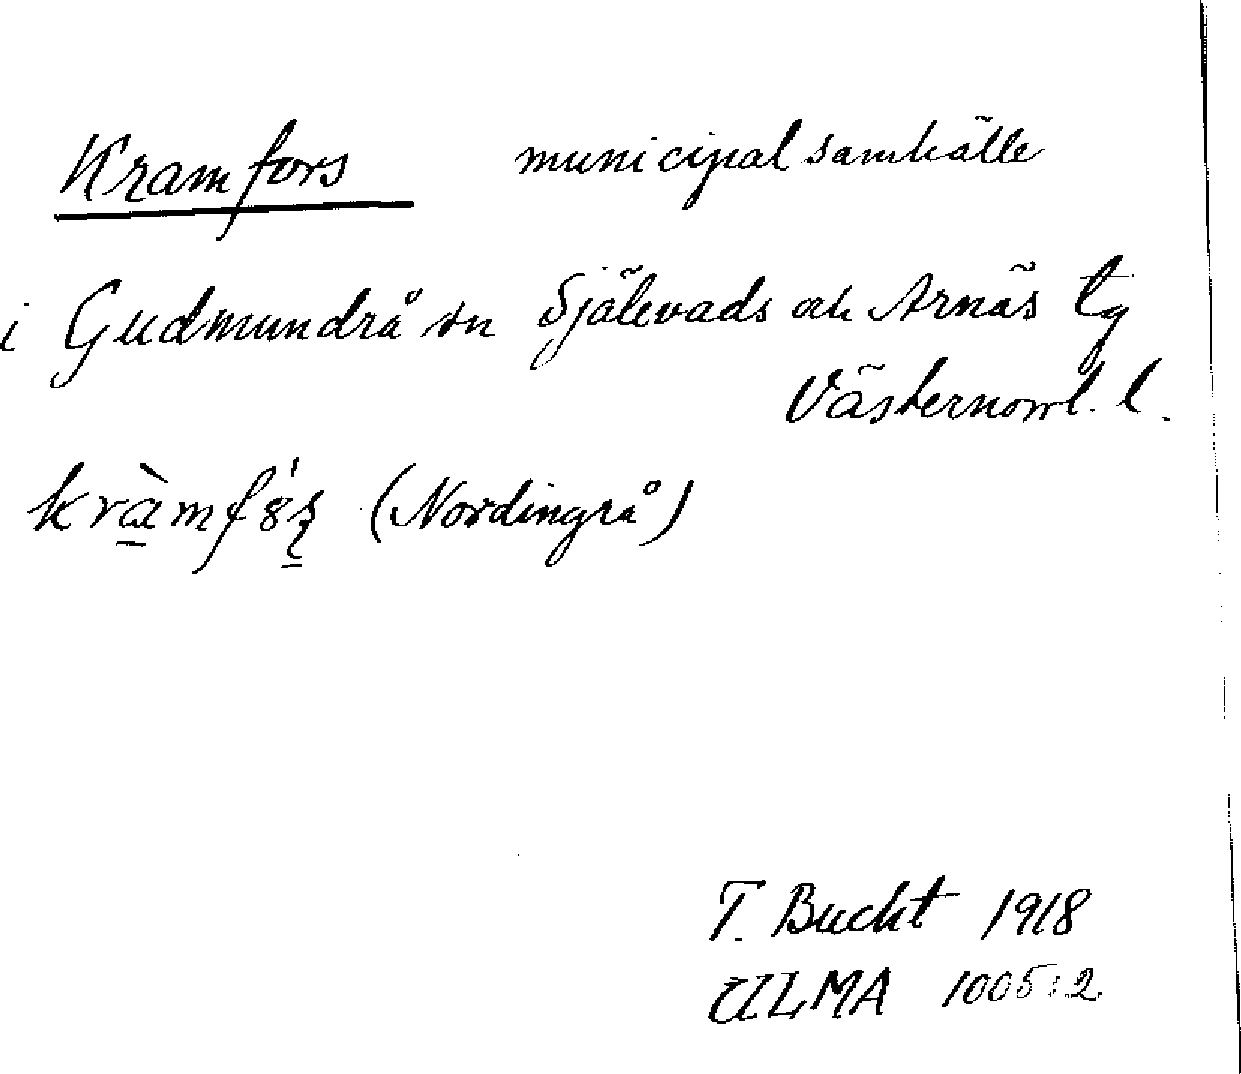 Kramfors municipalsamhälle
i Gudmundrå sn Själevads och Arnäs tg
Västernorrl. l.
(Nordingrå)
T. Bucht 1918
ULMA 1005:2